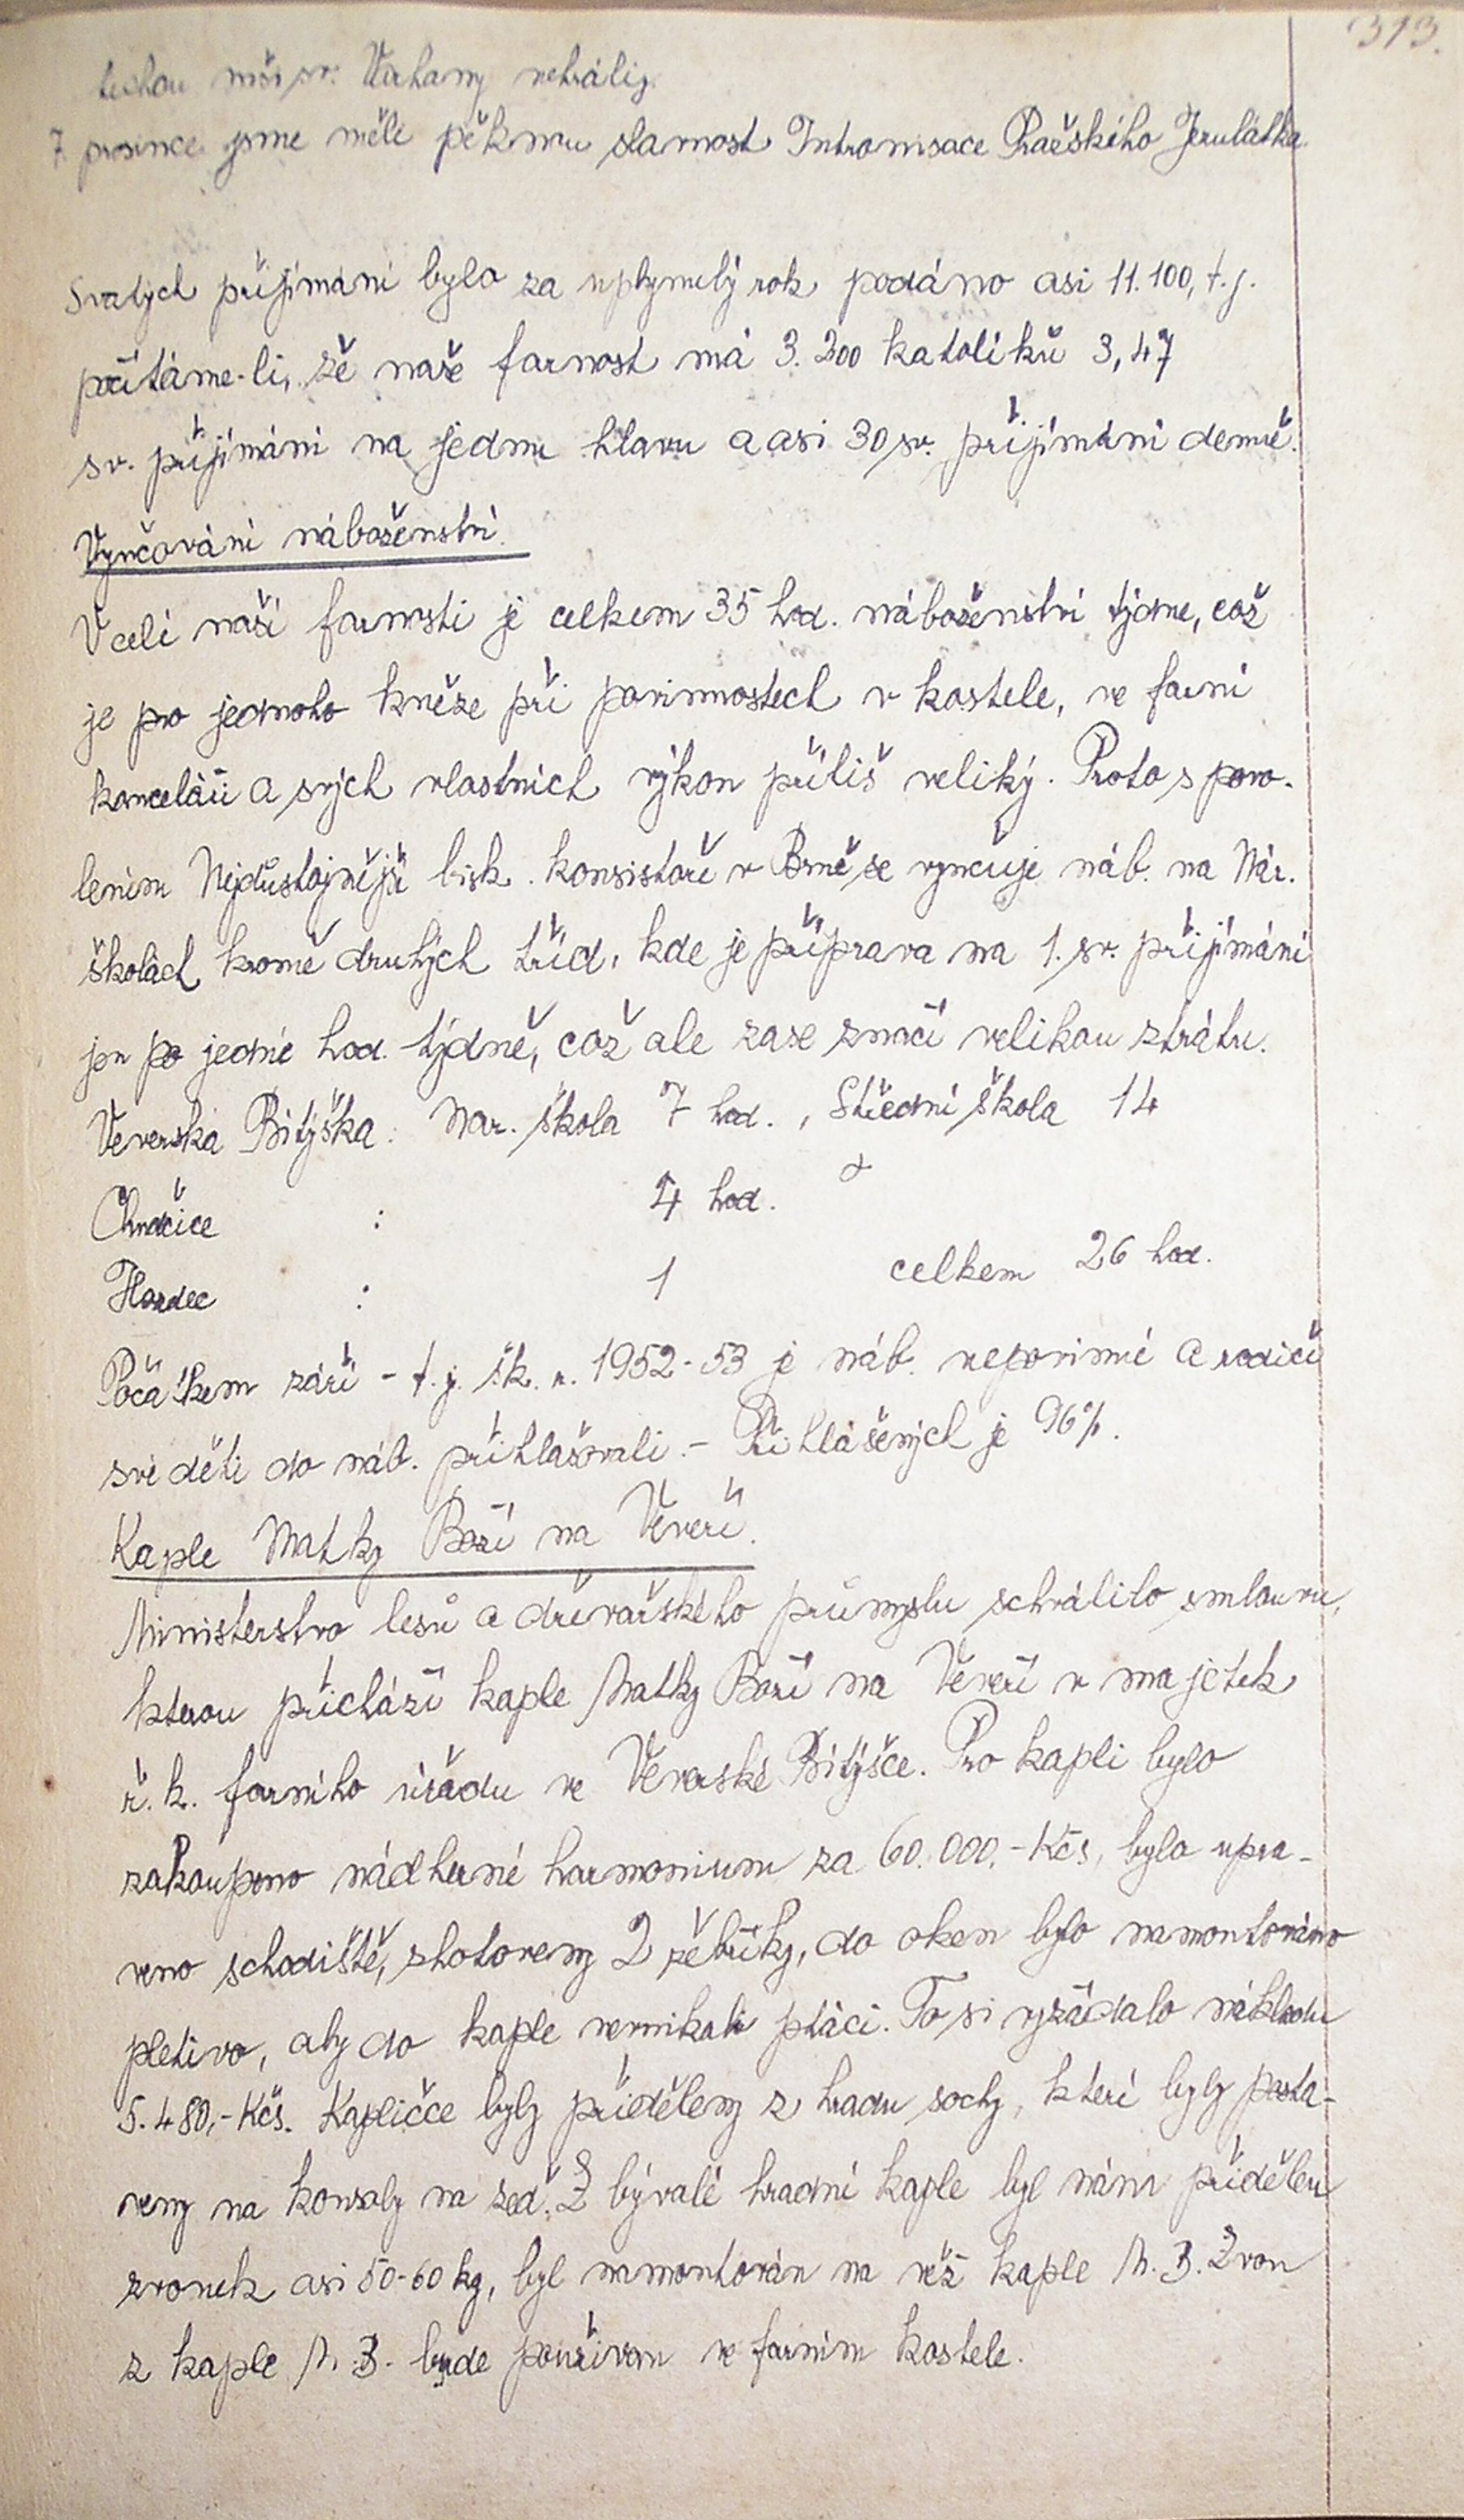 313.
tichou mši sv. Varhany nehrály.
7. prosince jsme měli pěknou slavnost Intronisace Pražského Jezulátka.
Svatých přijímání bylo za uplynulý rok podáno asi 11.100, t.j.
počítáme-li, že naše farnost má 3.200 katolíků 3,47
sv. přijímání na jednu hlavu a asi 30 sv. přijímání denně.
Vyučování náboženství.
V celé naší farnosti je celkem 35 hod. náboženství týdne, což
je pro jednoho kněze při povinnostech v kostele, ve farní
kanceláři a svých vlastních výkon příliš veliký. Proto s povo-
lením Nejdůstojnější bisk. konsistoře v Brně se vyučuje náb. na Nár.
školách kromě druhých tříd, kde je příprava na 1. sv. přijímání
jen po jedné hod. týdně, což ale zase značí velikou ztrátu.
Veverská Bitýška: Nar. škola 7 hod., Střední škola 14
Chudčice : 4 hod.
Hozdec : 1 celkem 26 hod.
Počátkem září - t.j. šk. r. 1952-53 je náb. nepovinné a rodiče
své děti do náb. přihlašovali. - Přihlášených je 96%.
Kaple Matky Boží na Veveří.
Ministerstvo lesů a dřevařského průmyslu schválilo smlouvu,
kterou přichází kaple Matky Boží na Veveří v majetek
ř. k. farního úřadu ve Veverské Bitýšce. Pro kapli bylo
zakoupeno nádherné harmonium za 60.000.-Kčs, bylo upra-
veno schodiště, zhotoveny 2 žebříky, do oken bylo namontováno
pletivo, aby do kaple nevnikali ptáci. To si vyžádalo nákladu
5.480,-Kčs. Kapličce byly přiděleny z hradu sochy, které byly posta-
veny na konsoly na zeď. Z bývalé hradní kaple byl nám přidělen
zvonek asi 50-60 kg, byl namontován na věž kaple M.B. Zvon
z kaple M.B. bude používán ve farním kostele.